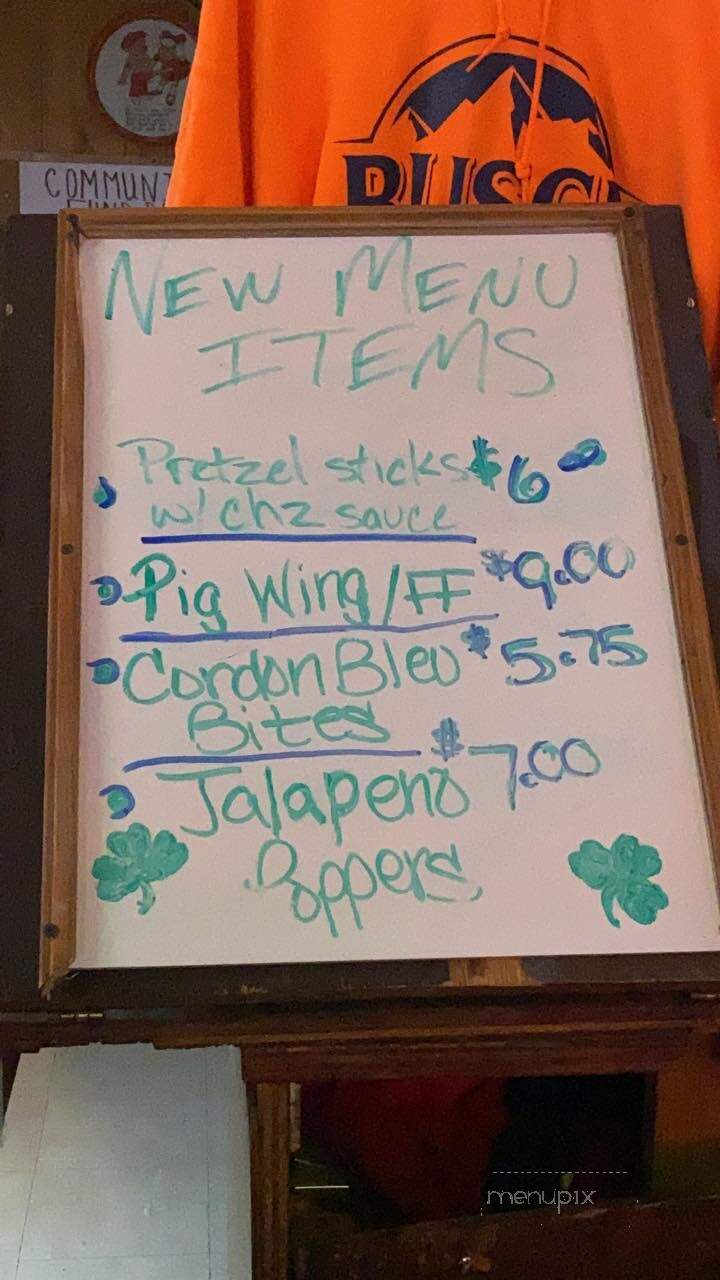 COMMUN
BUSC
NEW MENU
ITEMS
Pretzel sticks $6.00
w/ chz sauce
Pig Wing/FF $9.00
Cordon Bleu $5.75
Bites
Jalapeno $7.00
Poppers
menupix